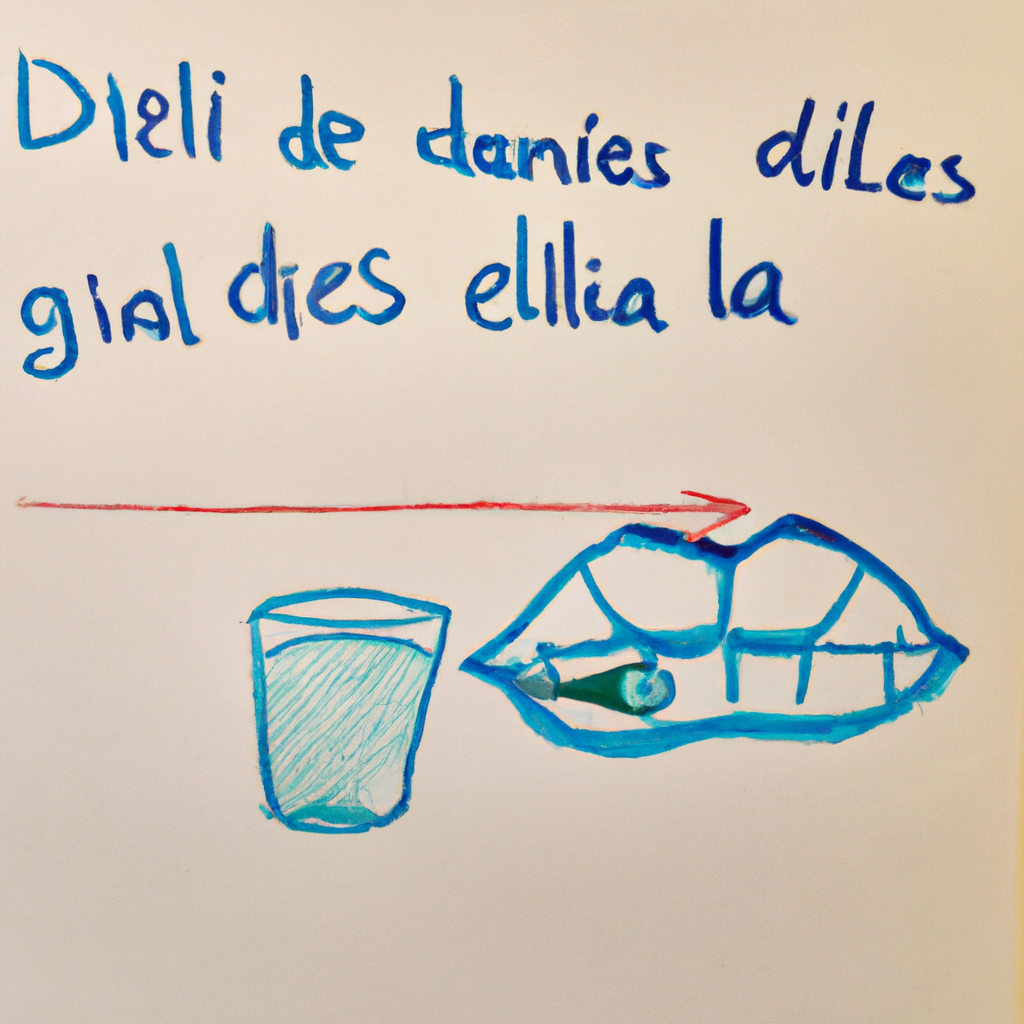 Dieli de danies diles
gial dies elllia la